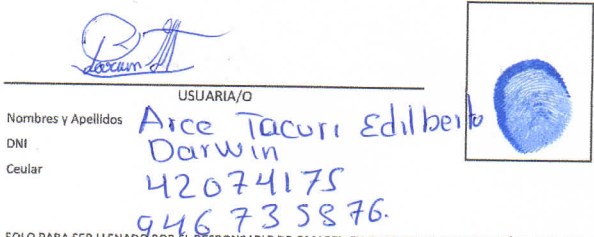 Darwin
USUARIA/O
Nombres y Apellidos Arce Tacuri Edilberto
DNI Darwin
Ceular 42074175
946735876.
SOLO PARA SER LLENADO POR EL RESPONSABLE DE